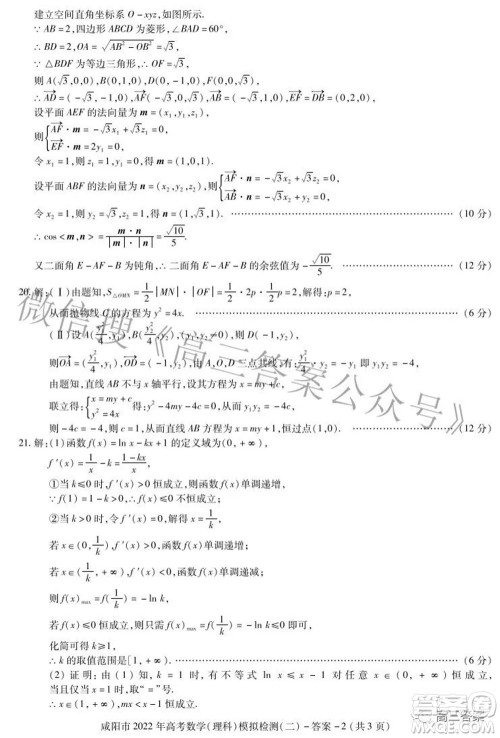 建立空间直角坐标系 O-xyz,如图所示.
∵AB=2,四边形 ABCD 为菱形,∠BAD=60°,
∴BD=2,OA=√(AB²-OB²)=√3.
∵△BDF 为等边三角形,∴OF=√3,
则 A(√3,0,0),B(0,1,0),D(0,-1,0),F(0,0,√3),
∴AD=(-√3,-1,0),AF(-√3,0,√3),AB=(-√3,1,0),EF=DB=(0,2,0),
设平面 AEF 的法向量为 m=(x₁,y₁,z₁),
则{AF·m=-√3x₁+√3z₁=0,
EF·m=2y₁=0,
令 x₁=1,则 z₁=1,y₁=0,得 m=(1,0,1).
设平面 ABF 的法向量为 n=(x₂,y₂,z₂),则{AF·n=-√3x₂+√3z₂=0,
AB·n=-√3x₂+y₂=0,
令 x₂=1,则 y₂=√3,z₂=1,得 n=(1,√3,1). (10 分)
∴cos<m,n>=m·n/|m|·|n|=√10/5.
又二面角 E-AF-B 为钝角,∴二面角 E-AF-B 的余弦值为-√10/5. (12 分)
20.解:(Ⅰ)由题知,S△OMN=1/2|MN|·|OF|=1/2·2p·1/2p=2,解得:p=2,
从而抛物线 C 的方程为 y²=4x. (6 分)
由题知,直线 AB 不与 x 轴平行,设其方程为 x=my+c,
联立得:{x=my+c
y²=4x
则 -4c=-4,则 c=1,从而直线 AB 方程为 x=my+1,恒过点(1,0). (12 分)
21.解:(1)函数 f(x)=ln x-kx+1 的定义域为(0,+∞),
f′(x)=1/x-k=(1-kx)/x,
①当 k≤0时,f′(x)>0 恒成立,则函数 f(x)单调递增,
∵f(1)=1-k>0,∴f(x)≤0 不恒成立;
②当 k>0 时,令 f′(x)=0,解得 x=1/k,
若 x∈(0,1/k),f′(x)>0,函数 f(x)单调递增;
若 x∈(1/k,+∞),f′(x)<0,函数 f(x)单调递减;
则 f(x)max=f(1/k)=-ln k,
若 f(x)≤0 恒成立,则只需 f(x)max=f(1/k)=-ln k≤0,
化简可得 k≥1,
∴k 的取值范围是[1,+∞). (6 分)
(2) 证明:由(1)知,k=1 时,有不等式 ln x≤x-1 对任意 x∈(0,+∞)恒成立,
当且仅当 x=1 时,取“=”号,
咸阳市 2022 年高考数学(理科)模拟检测(二)-答案-2(共 3 页)
微信搜《高三答案公众号》